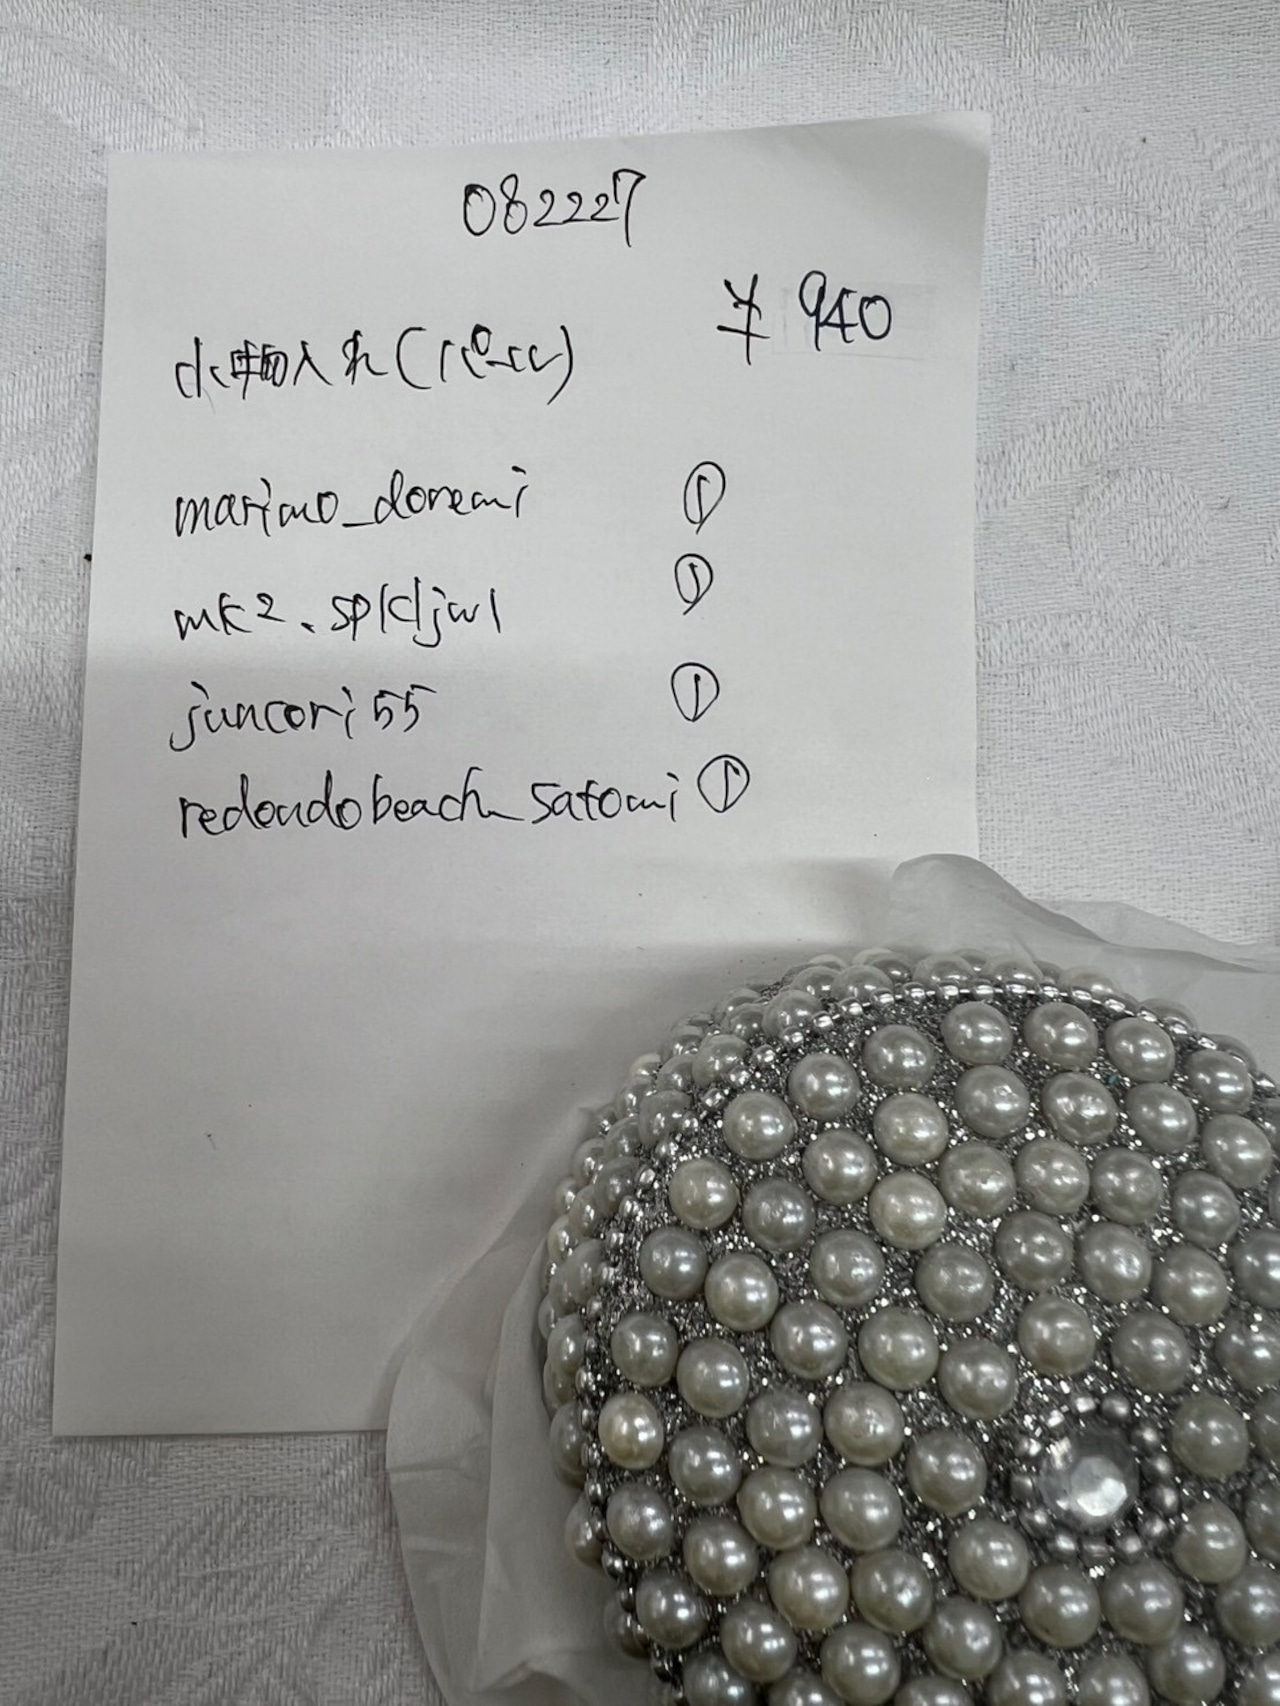 082227
¥940
小物入れ(パール)
marimo_doremi ①
mk2.spldjwl ①
juncori55 ①
redondobeach_satomi ①